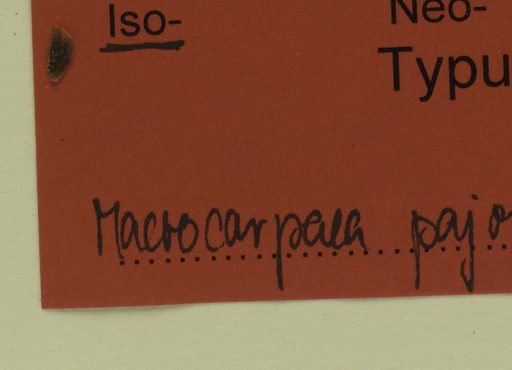 Iso- Neo-
Typu
Macrocarpaea pajo